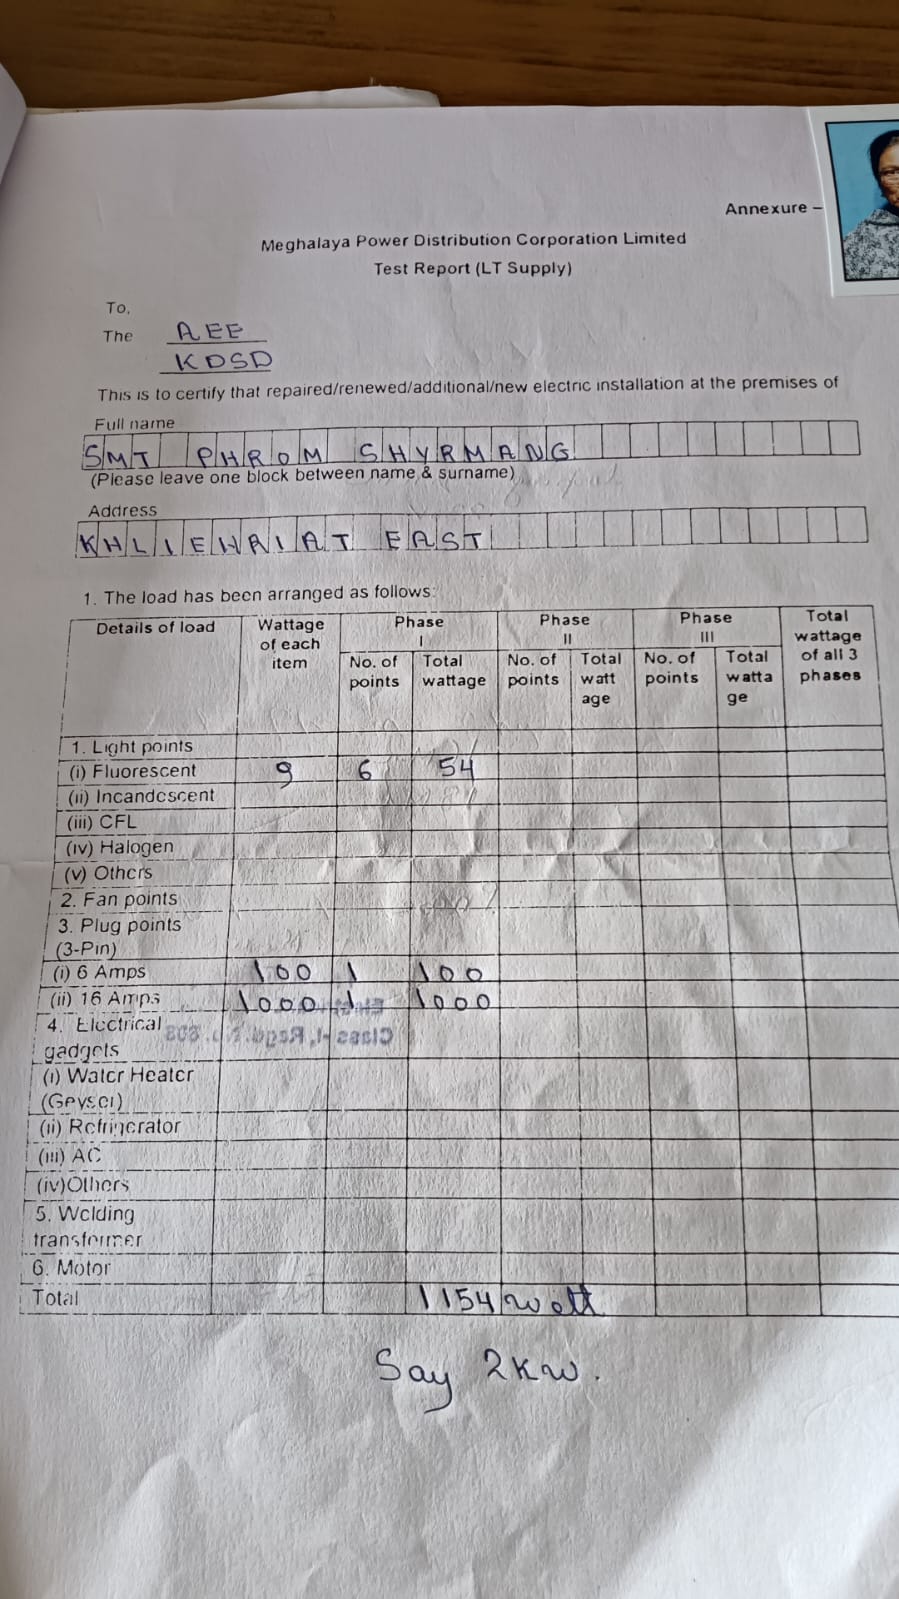 Annexure –
Meghalaya Power Distribution Corporation Limited
Test Report (LT Supply)
To,
The AEE
KDSD
This is to certify that repaired/renewed/additional/new electric installation at the premises of
Full name
SMT PHROM SHYRMANG
(Please leave one block between name & surname)
Address
KHLIEHRIAT EAST
1. The load has been arranged as follows:
Details of load Wattage of each item Phase I Phase II Phase III Total wattage of all 3 phases
No. of points Total wattage No. of points Total watt age No. of points Total watta ge
1. Light points
(i) Fluorescent 9 6 54
(ii) Incandescent
(iii) CFL
(iv) Halogen
(v) Others
2. Fan points
3. Plug points
(3-Pin)
(i) 6 Amps 100 1 100
(ii) 16 Amps 1000 1 1000
4. Electrical
gadgets
(i) Water Heater
(Geyser)
(ii) Refrigerator
(iii) AC
(iv)Others
5. Welding
transformer
6. Motor
Total 1154 watt
Say 2KW.